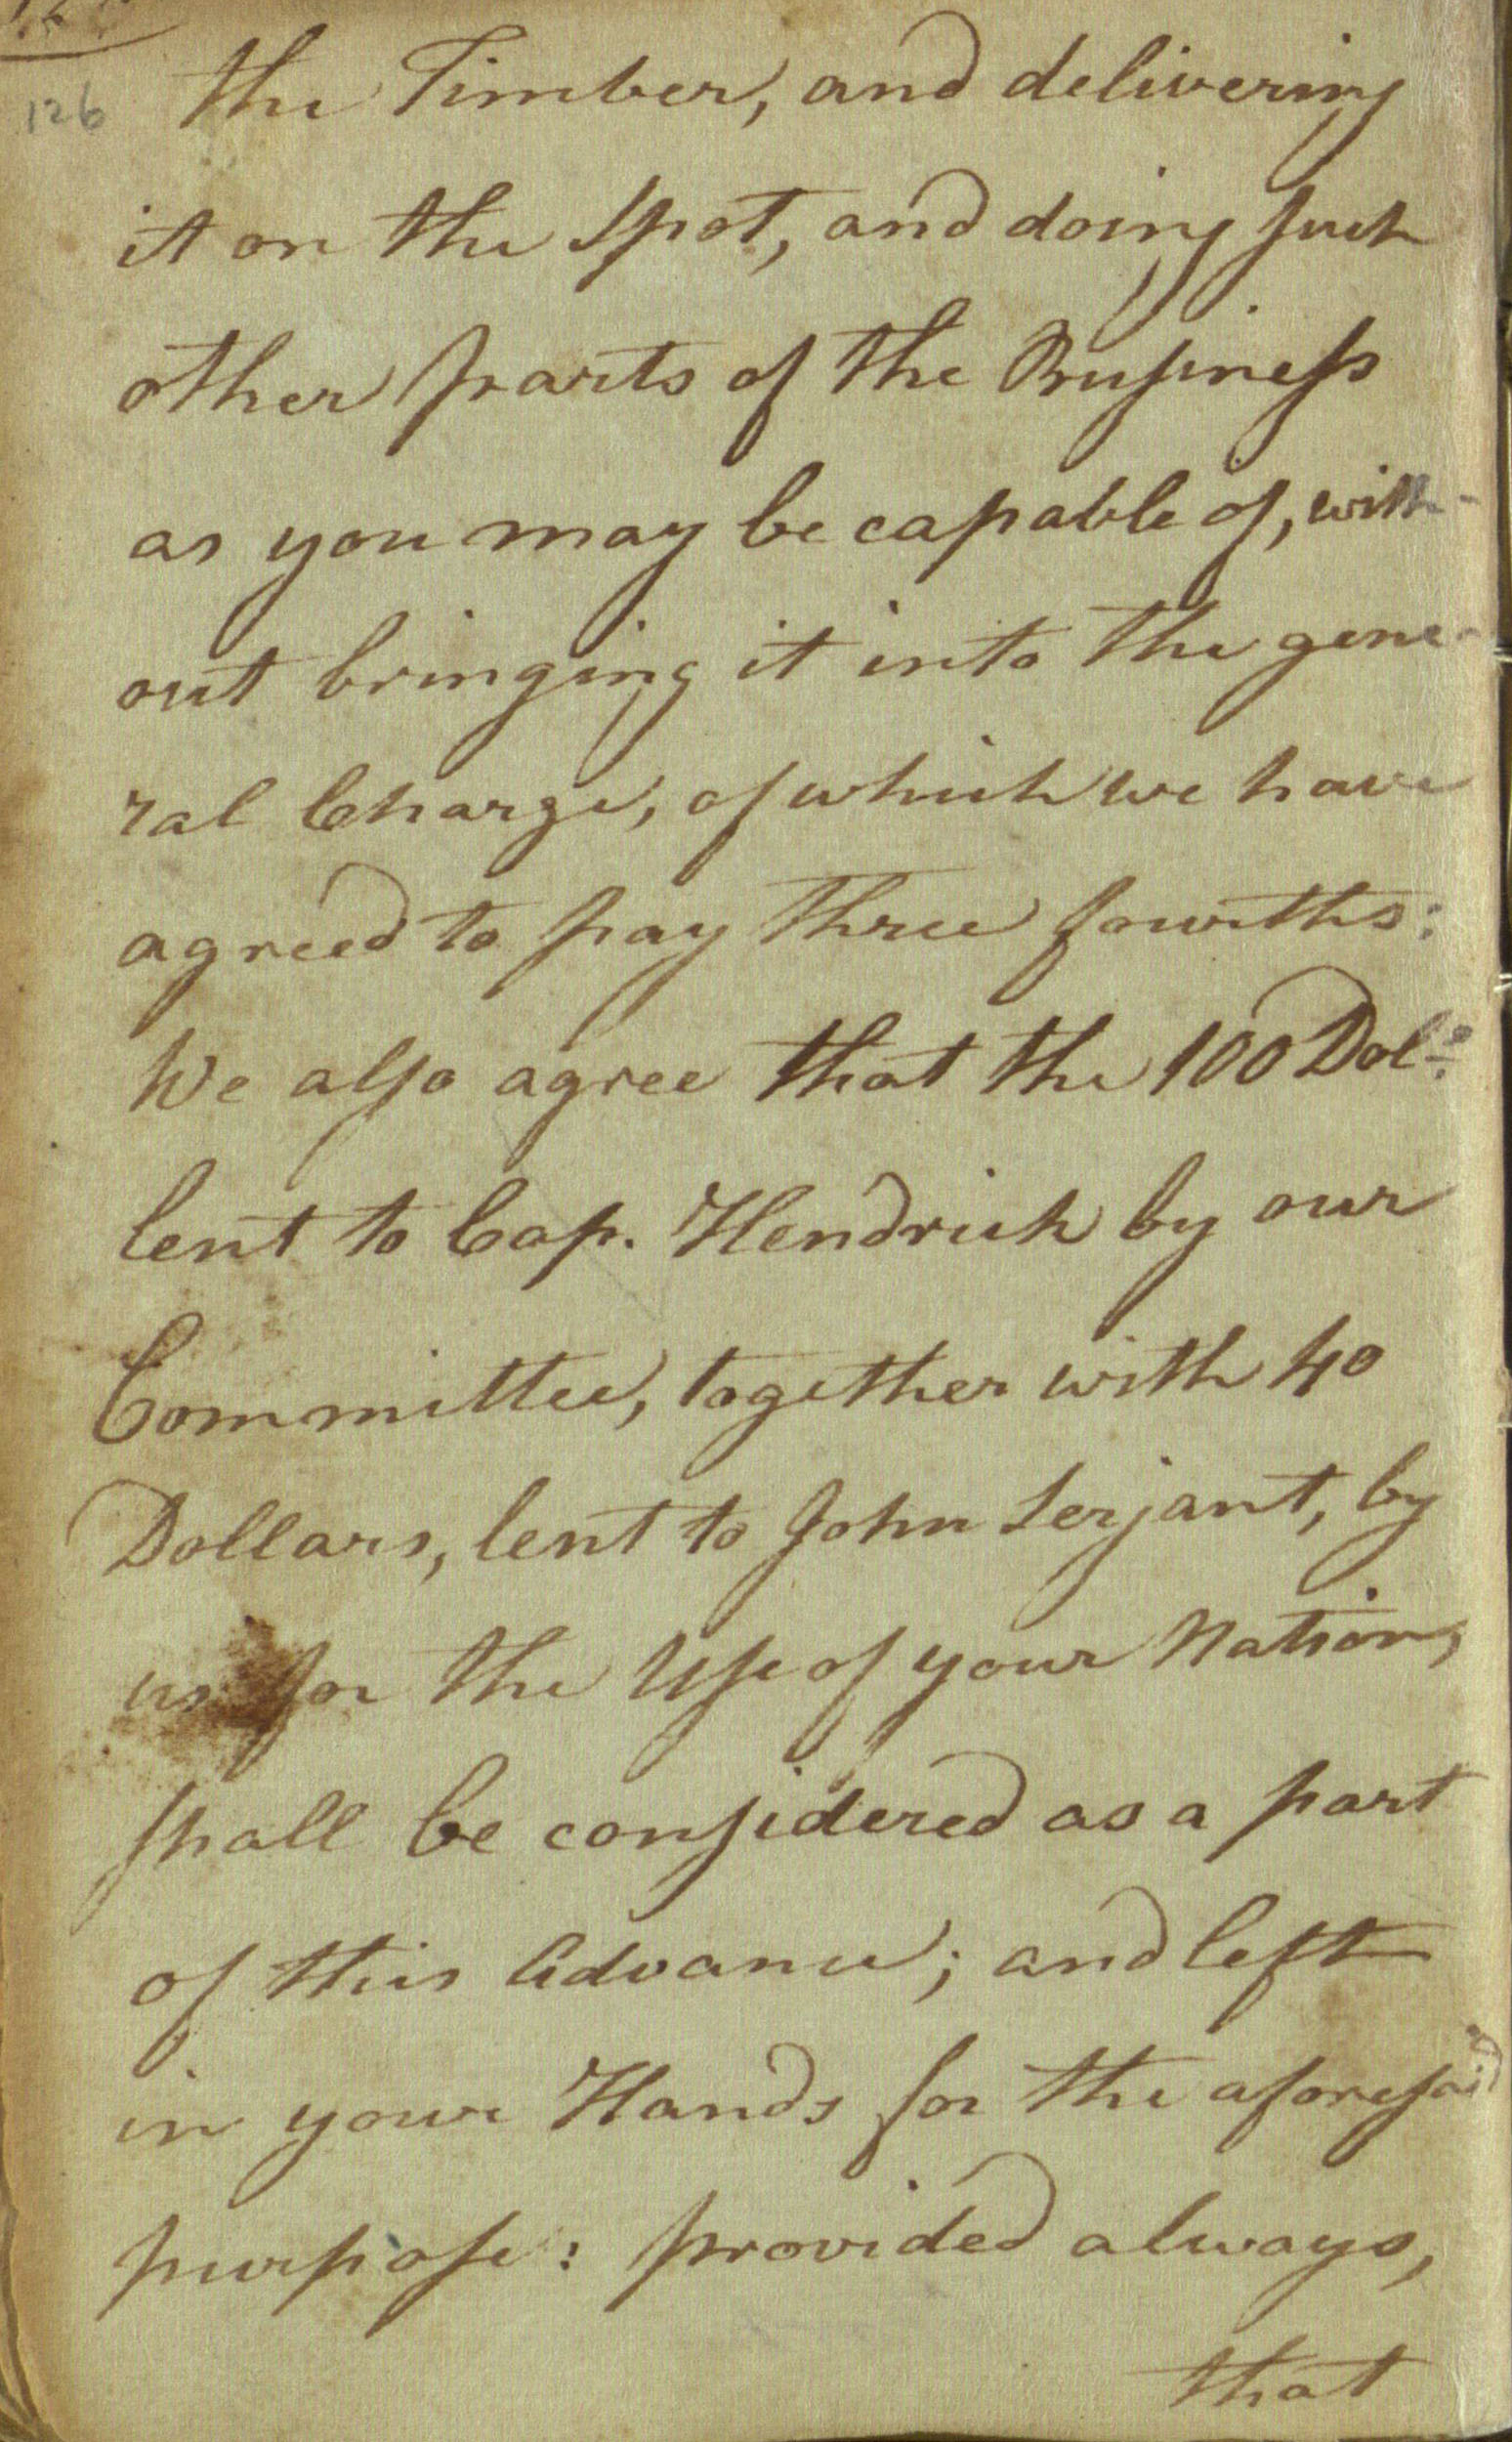 126
the Timber, and delivering
it on the Spot, and doing such
other parts of the Business
as you may be capable of, with-
out bringing it into the gene-
ral Charge, of which we have
agreed to pay three fourths:
We also agree that the 100 Dols.
lent to Cap. Hendrick by our
Committee, together with 40
Dollars, lent to John Serjant, by
us for the Use of your Nation,
shall be considered as a part
of this Advance; and left
in your Hands for the aforesaid
purpose: provided always,
that